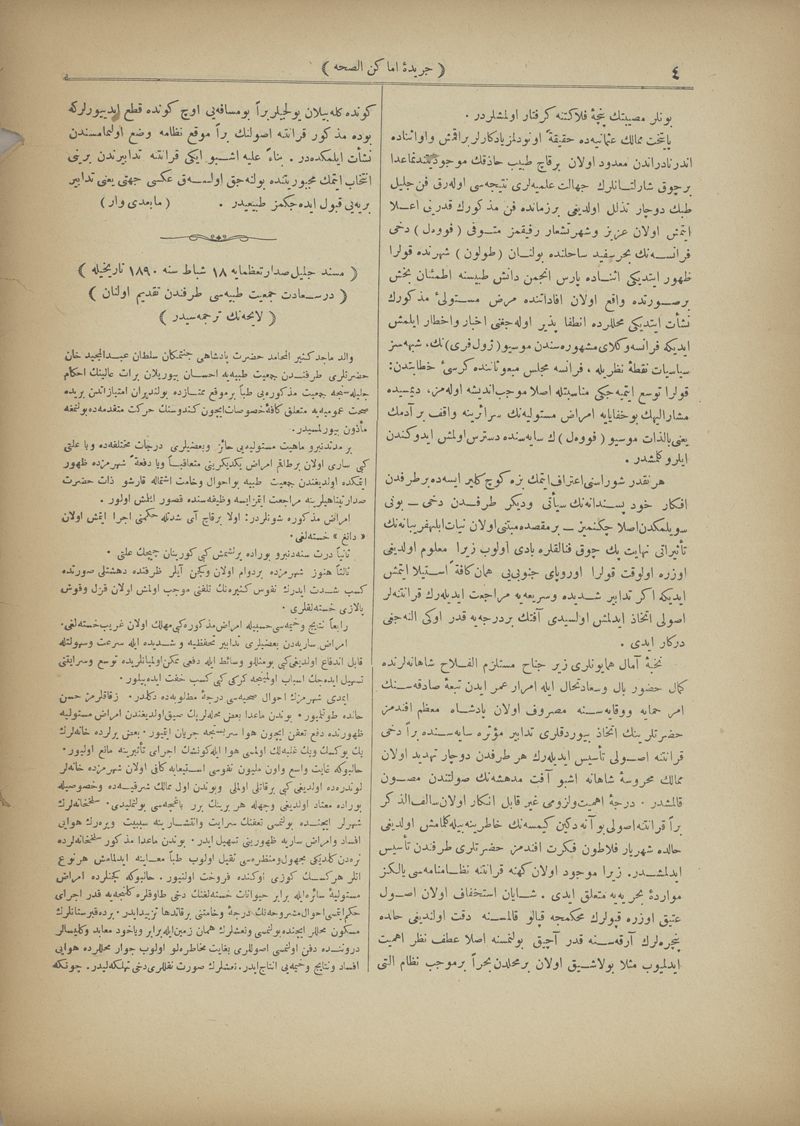 ٤
( جریدهٔ اماکن الصحه )
بونلر مصیبتك پنجهٔ فلاکتنه گرفتار اولمشلردر .
پایتخت ممالك عثمانیه‌ده حقیقةً اونودلمز یادکارلر براقمش واواثناده
اندر نادراتدن معدود اولان برقاچ طبیب حاذقك موجودیتندن ماعدا
برچوق شارلتانلرك جهالت علمیه‌لری نتیجه‌سی اوله‌رق فن جلیل
طبك دوچار تذلل اولدیغی برزمانده فن مذکورك قدرینی اعلا
ایتمش اولان عزیز و شهرتشعار رفیقمز متوفی ( فوول ) دخی
فرانسه‌نك بحر سفید ساحلنده بولنان ( طولون ) شهرنده قولرا
ظهور ایتدیکی اثناده پارس انجمن دانش طبیسنه اطمئنان بخش
برصورتده واقع اولان افاداتنده مرض مستولیٔ مذکورك
نشأت ایتدیکی محللرده انطفا پذیر اوله‌جغنی اخبار واخطار ایلمش
ایدیکه فرانسه وکلای مشهوره‌سندن موسیو ( ژول فری ) نك، شبهه‌سز
سیاسیات نقطهٔ نظریله ، فرانسه مجلس مبعوثاننده کرسیٔ خطابتدن :
قولرا توسع ایتمیه‌جکی مناسبتله اصلا موجب اندیشه اوله‌مز، دیمسیده
مشارالیهك بوخفایایه امراض مستولیه‌نك سرائرینه واقف برآدمك
یعنی بالذات موسیو ( فوول ) ك سایه‌سنده دسترس اولمش ایدوکندن
ایلرو کلمشدر .
هر نقدر شوراسنی اعتراف ایتمك بزه کوچ کلیر ایسه‌ده برطرفدن
افکار خود پسندانه‌نك سیأتی ودیکر طرفدن دخی — بونی
سویلمکدن اصلا چکنمیز — برمقصده مبتنی اولان نیات ابلهفریبانه‌نك
تأثیراتی نهایت پك چوق فنالقلره بادی اولوب زیرا معلوم اولدیغی
اوزره اولوقت قولرا اوروپای جنوبی‌یی همان کافةً استیلا ایتمش
ایدیکه اکر تدابیر شدیده وسریعه‌یه مراجعت ایدیله‌رك قرانتنه‌لر
اصولی اتخاذ ایدلمش اولسیدی آفتك بردرجه‌یه قدر اوکی النه‌جغی
درکار ایدی .
نخبهٔ آمال همایونلری زیر جناح مستلزم الفلاح شاهانه‌لرنده
کمال حضور بال وسعادتحال ایله امرار عمر ایدن تبعهٔ صادقه‌سنك
امر حمایه ووقایه‌سنه مصروف اولان پادشاه معظم افندمز
حضرتلرینك اتخاذ بیوردقلری تدابیر مؤثره سایه‌سنده براً دخی
قرانتنه اصولی تأسیس ایدیله‌رك هر طرفدن دوچار تهدید اولان
ممالك محروسهٔ شاهانه اشبو آفت مدهشه‌نك صولتندن مصون
قالمشدر . درجهٔ اهمیت ولزومی غیر قابل انکار اولان سالف الذکر
براً قرانتنه اصولی بوآنه دکین کیمسه‌نك خاطرینه بیله کلمامش اولدیغی
حالده شهریار فلاطون فکرت افندمز حضرتلری طرفندن تأسیس
ایدلمشدر. زیرا موجود اولان کهنه قرانتنه نظامنامه‌سی یالکز
مواردهٔ بحریه‌یه متعلق ایدی . شایان استخفاف اولان اصول
عتیق اوزره قپولرك محکمجه قپالو قالمسنه دقت اولندیغی حالده
پنجره‌لرك آرقه‌سنه قدر آچیق بولنمسنه اصلا عطف نظر اهمیت
ایدلمیوب مثلا بولاشیق اولان برمحلدن بحراً برموجب نظام التی
کونده کله‌بیلان یولجیلر براً بومسافه‌یی اوچ کونده قطع ایدییورلرکه
بوده مذکور قرانتنه اصولنك براً موقع نظامه وضع اولنمامسندن
نشأت ایلمکده‌در . بناءً علیه اشبو ایکی قرانتنه تدابیرندن برینی
انتخاب ایتمك مجبوریتنده بولنه‌جق اولسه‌ق عکسی جهتی یعنی تدابیر
بریه‌یی قبول ایده‌جکمز طبیعیدر . ( مابعدی وار )
( مسند جلیل صدارتعظمایه ١٨ شباط سنه ١٨٩٠ تاریخیله )
( درسعادت جمعیت طبیه‌سی طرفندن تقدیم اولنان )
( لایحه‌نك ترجمه‌سیدر )
والد ماجد کثیر المحامد حضرت پادشاهی جنتمکان سلطان عبدالمجید خان
حضرتلری طرفندن جمعیت طبیه‌یه احسان بیوریلان برات عالینك احکام
جلیله‌سنجه جمعیت مذکوره‌یی طباً برموقع ممتازده بولندیران امتیازاتدن بریده
صحت عمومیه‌یه متعلق کافهٔ خصوصات ایچون کندوسنك حرکت متقدمه‌ده بولنمغه
مأذون بیورلمسیدر.
بر مدتدنبرو ماهیت مستولیه‌یی حائز وبعضیلری درجات مختلفه‌ده ویا علتی
کبی ساری اولان برطاقم امراض یکدیکرینی متعاقباً ویا دفعةً شهرمزده ظهور
ایتمکده اولدیغندن جمعیت طبیه بواحوال وخامت اشتماله قارشو ذات حضرت
صدارتپناهیلرینه مراجعت ایتمز ایسه وظیفه‌سنده قصور ایتلش اولور .
امراض مذکوره شونلردر : اولا برقاچ آی شدتله حکمنی اجرا ایتمش اولان
« دانغ » خسته‌لغی .
ثانیاً درت سنه‌دنبرو بوراده یرلشمش کبی کورینان چیچك علتی .
ثالثاً هنوز شهرمزده بردوام اولان وکچن آیلر ظرفنده دهشتلی صورتده
کسب شدت ایدرك نفوس کثیره‌نك تلفنی موجب اولمش اولان قزل وقوش
پالازی خسته‌لقلری .
رابعاً نتایج وخیمه‌سی حسبیله امراض مذکوره کبی مهلك اولان غریب خسته‌لغی .
امراض ساریه‌دن بعضیلری تدابیر تحفظیه و شدیده ایله سرعت وسهولتله
قابل اندفاع اولدیغی کبی بومثللو وسائط ایله دفعی ممکن اولمیانلریده توسع وسرایتنی
تسهیل ایده‌جك اسباب اولمینجه کرکی کبی کسب خفت ایده‌بیلور .
ایمدی شهرمزك احوال صحیه‌سی درجهٔ مطلوبه‌ده دکلدر . زقاقلرمز حسن
حالده طوتلمیور . بوندن ماعدا بعض محله‌لر پك صیق اولدیغندن امراض مستولیه
ظهورنده دفع تعفن ایچون هوا سربستجه جریان ایتمیور . بعض یرلرده خانه‌لرك
پك یوکسك وپك غلبه‌لك اولمسی هوا ایله کونشك اجرای تأثیرینه مانع اولیور .
حالبوکه غایت واسع واون ملیون نفوسی استیعابه کافی اولان شهرمزده خانه‌لر
لوندره‌ده اولدیغی کبی برقاتلی اولملی وبوندن اول ممالك شرقیه‌ده وخصوصیله
بوراده معتاد اولدیغی وجهله هر برینك برر باغچه‌سی بولنملیدی . سلخخانه‌لرك
شهرلر ایچنده بولنمسی تعفنك سرایت وانتشارینه سببیت ویره‌رك هوایی
افساد وامراض ساریه ظهورینی تسهیل ایدر . بوندن ماعدا مذکور سلخخانه‌لرده
نره‌دن کلدیکی مجهول ومنظره‌سی ثقیل اولوب طباً معاینه ایدلمامش هر نوع
اتلر هرکسك کوزی اوکنده فروخت اولنیور . حالبوکه کچنلرده امراض
مستولیهٔ سائره ایله برابر حیوانات خسته‌لغنك دخی طاوقلره کلنجه‌یه قدر اجرای
حکم ایتمسی احوال مشروحه‌نك درجهٔ وخامتنی برقاتدها تزیید ایدر . برده قبرستانلرك
مسکون محللر ایچنده بولنمسی ونعشلرك همان زمین ایله برابر ویاخود معابد وکلیسالر
دروننده دفن اولنمسی اصوللری بغایت مخاطره‌لو اولوب جوار محللرده هوایی
افساد ونتایج وخیمه‌یی انتاج ایدر . نعشلرك صورت نقللری دخی تهلکه‌لیدر . چونکه